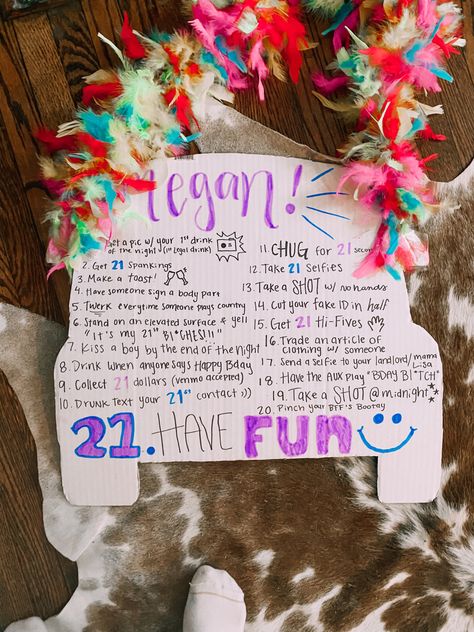 Megan!
1. Get a pic w/ your 1st drink
of the night (1st legal drink)
2. Get 21 Spankings
3. Make a toast!
4. Have someone sign a body part
5. Twerk everytime someone plays country
6. Stand on an elevated surface & yell
"It's my 21st BI*CHES!!!"
7. Kiss a boy by the end of the night
8. Drink when anyone says Happy Bday
9. Collect 21 dollars (venmo accepted)
10. Drunk text your 21st contact :))
11. CHUG for 21 seconds
12. Take 21 Selfies
13. Take a SHOT w/ no hands
14. Cut your fake ID in half
15. Get 21 Hi-Fives
16. Trade an article of
clothing w/ someone
17. Send a selfie to your landlord/mama
Lisa
18. Have the AUX play "BDAY BI*TCH"
19. Take a SHOT @ midnight
20. Pinch your BFF's Bootay
21. HAVE FUN